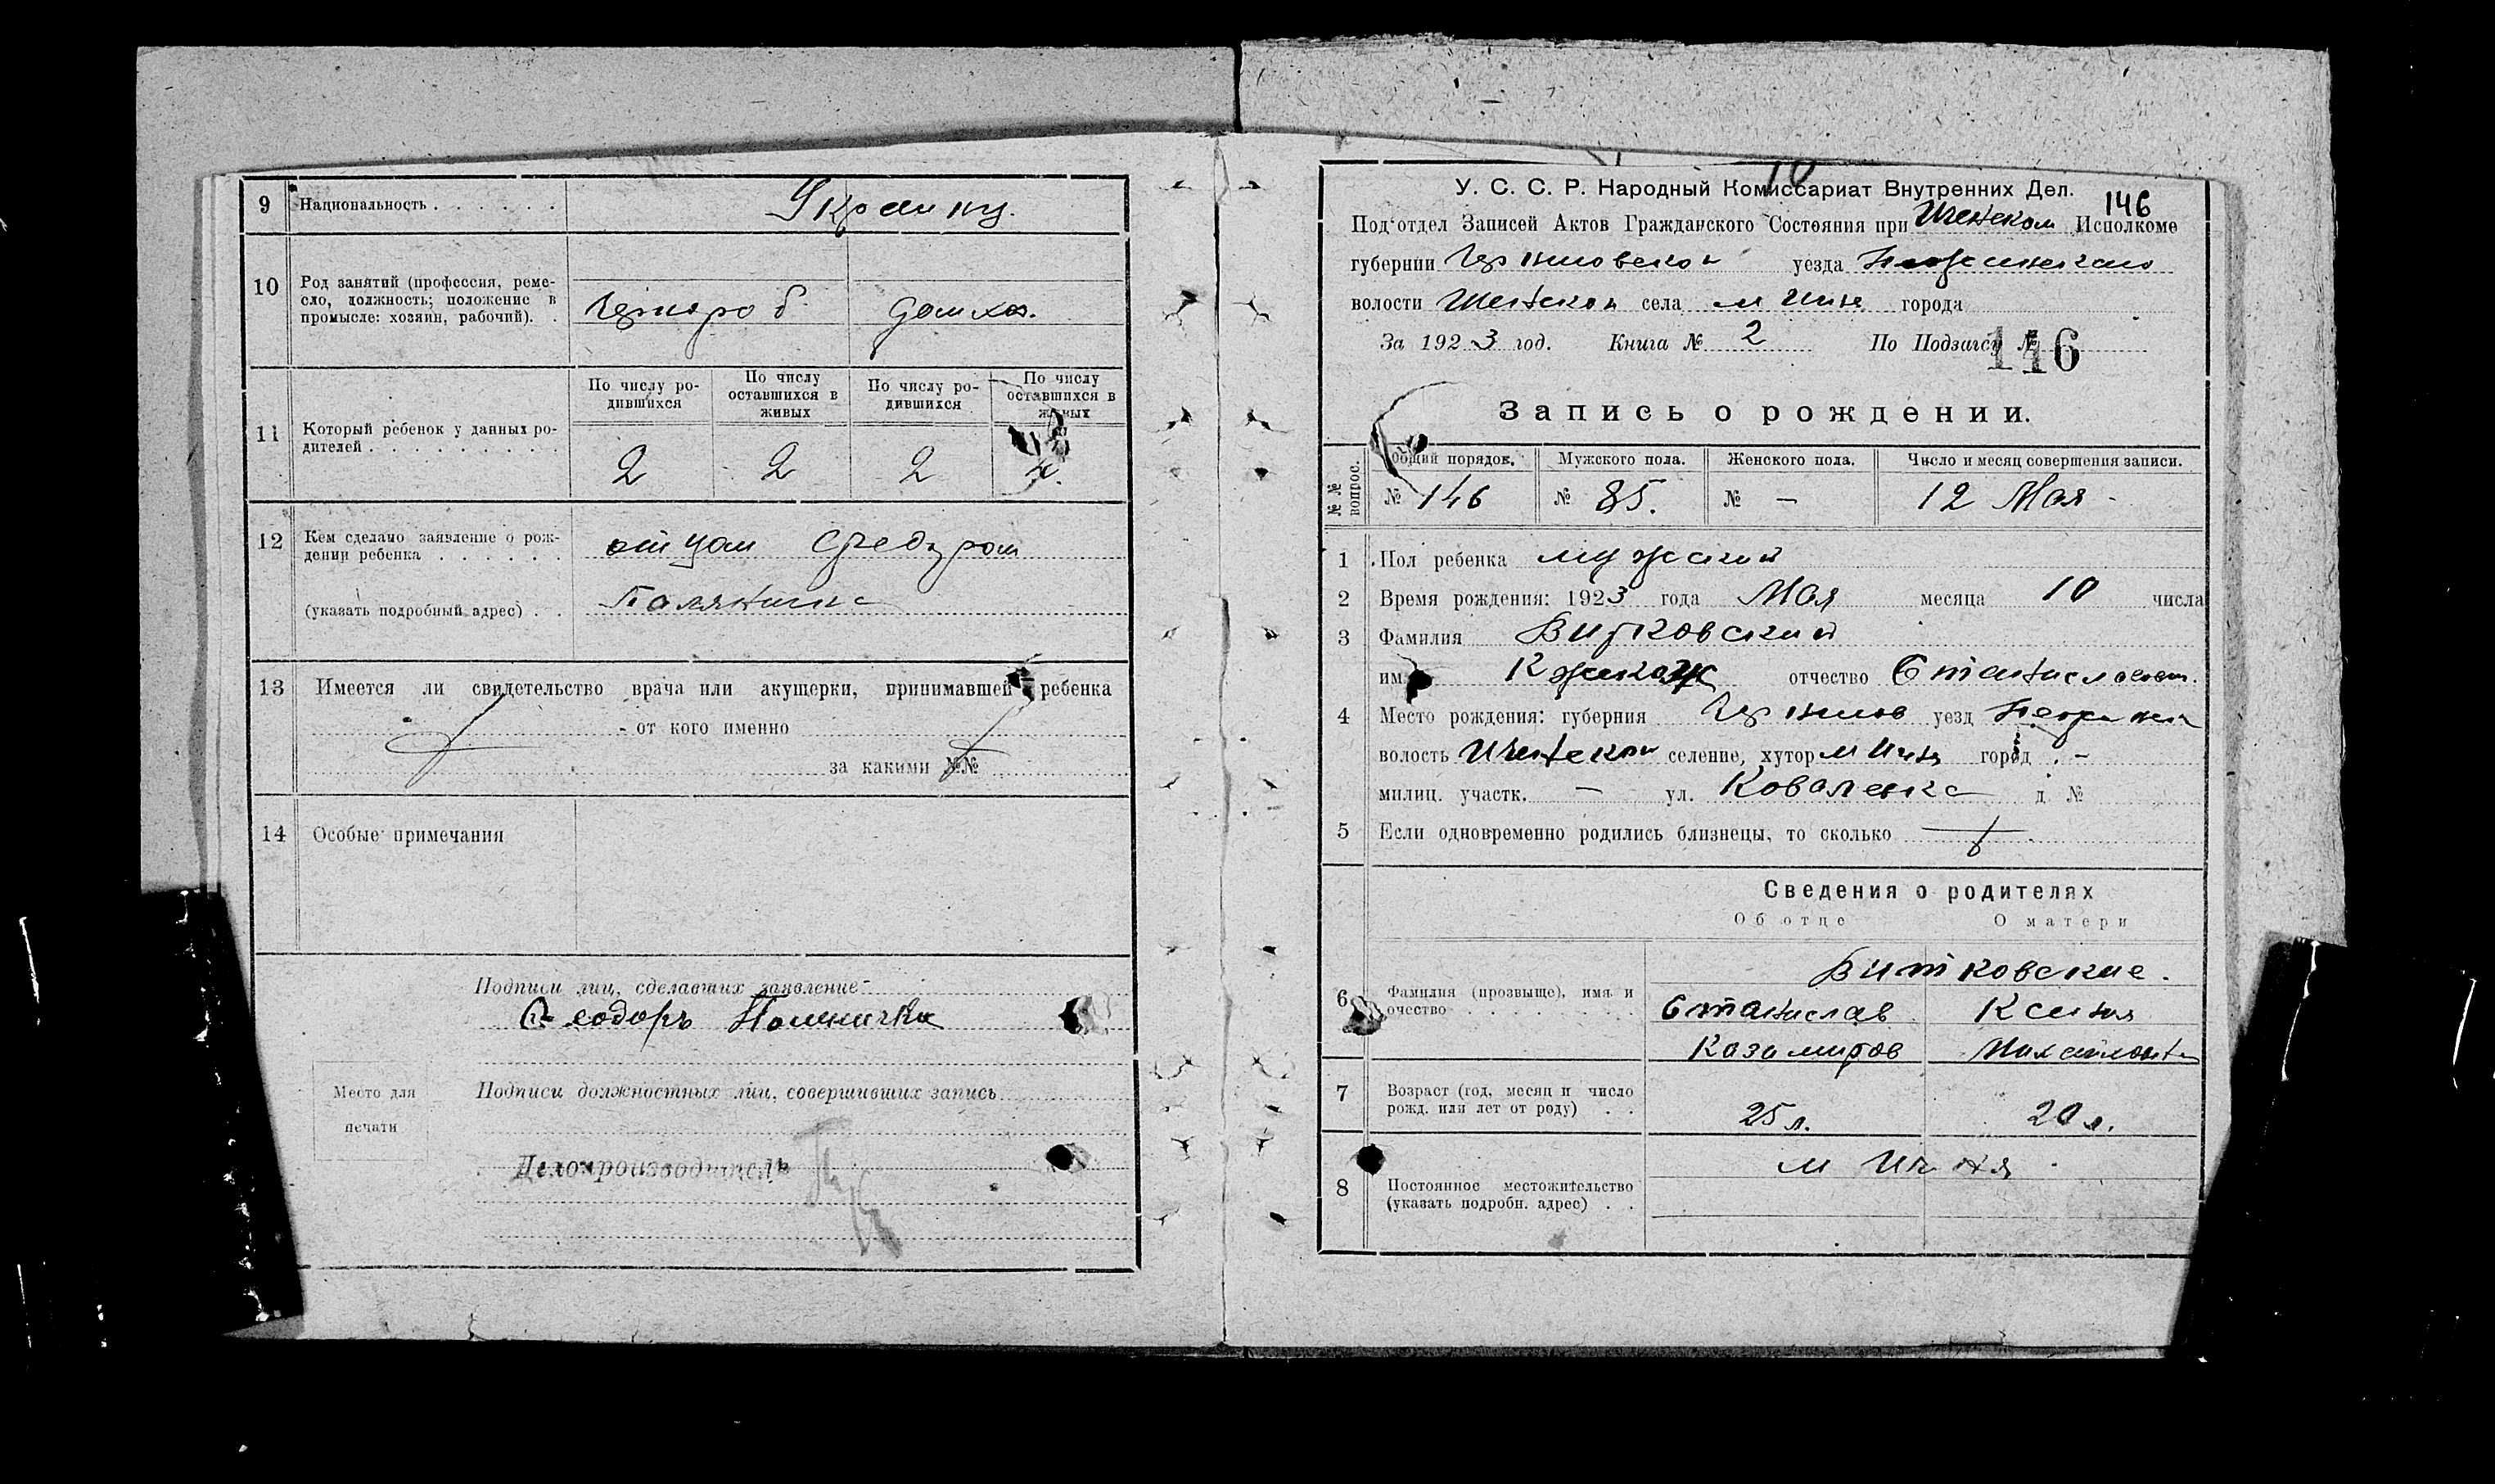 9 Национальность . . . . . . Украинц.
10 Род занятий (профессия, реме-
сло, должность; положение в
промысле: хозяин, рабочий). .
чернораб. домхоз.
11 Который ребенок у данных ро-
дителей . . . . . . . . .
По числу ро-
дившихся
По числу
оставшихся в
живых
По числу ро-
дившихся
По числу
оставшихся в
живых
2 2 2
12 Кем сделано заявление о рож-
дении ребенка . . . . . .
отцом Феодором
(указать подробный адрес) . .
13 Имеется ли свидетельство врача или акушерки, принимавшей ребенка
- от кого именно
за какими №№
14 Особые примечания
Подписи лиц, сделавших заявление
Феодоръ
Место для
печати
Подписи должностных лиц, совершивших запись
Делопроизводитель
10
У. С. С. Р. Народный Комиссариат Внутренних Дел.
146
Под'отдел Записей Актов Гражданского Состояния при Иченском Исполкоме
губернии Черниговской уезда Нежинского
волости Иченской села м Ичня города
За 1923 год. Книга № 2 По Подзагсу №
146
Запись о рождении.
№№ вопрос.
Общий порядок. Мужского пола. Женского пола. Число и месяц совершения записи.
№ 146 № 85. № — 12 Мая
1 Пол ребенка мужской
2 Время рождения: 1923 года Мая месяца 10 числа
3 Фамилия Витковский
имя отчество Станиславов.
4 Место рождения: губерния Чернигов уезд Нежински
волость Иченской селение, хутор м Ичня город . —
милиц. участк. — ул. Коваленка д №
5 Если одновременно родились близнецы, то сколько
Сведения о родителях
Об отце О матери
Витковские.
6 Фамилия (прозвище), имя и
очество . . . . . . .
Станислав Ксения
Казимиров Михайловна
7 Возраст (год, месяц и число
рожд. или лет от роду) . .
25 л. 20 л.
м Ичня
8 Постоянное местожительство
(указать подробн. адрес) . .